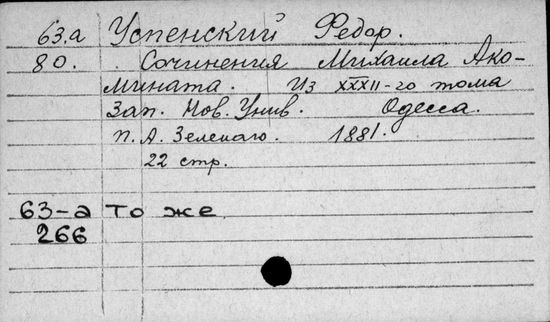 63.а Успенский Федор.
80. Сочинения Михаила Ако-
мината. Из XXXII-го тома
Зап. Нов. Унив. Одесса.
П. А. Зеленаго. 1881.
22 стр.
63-а то же
266